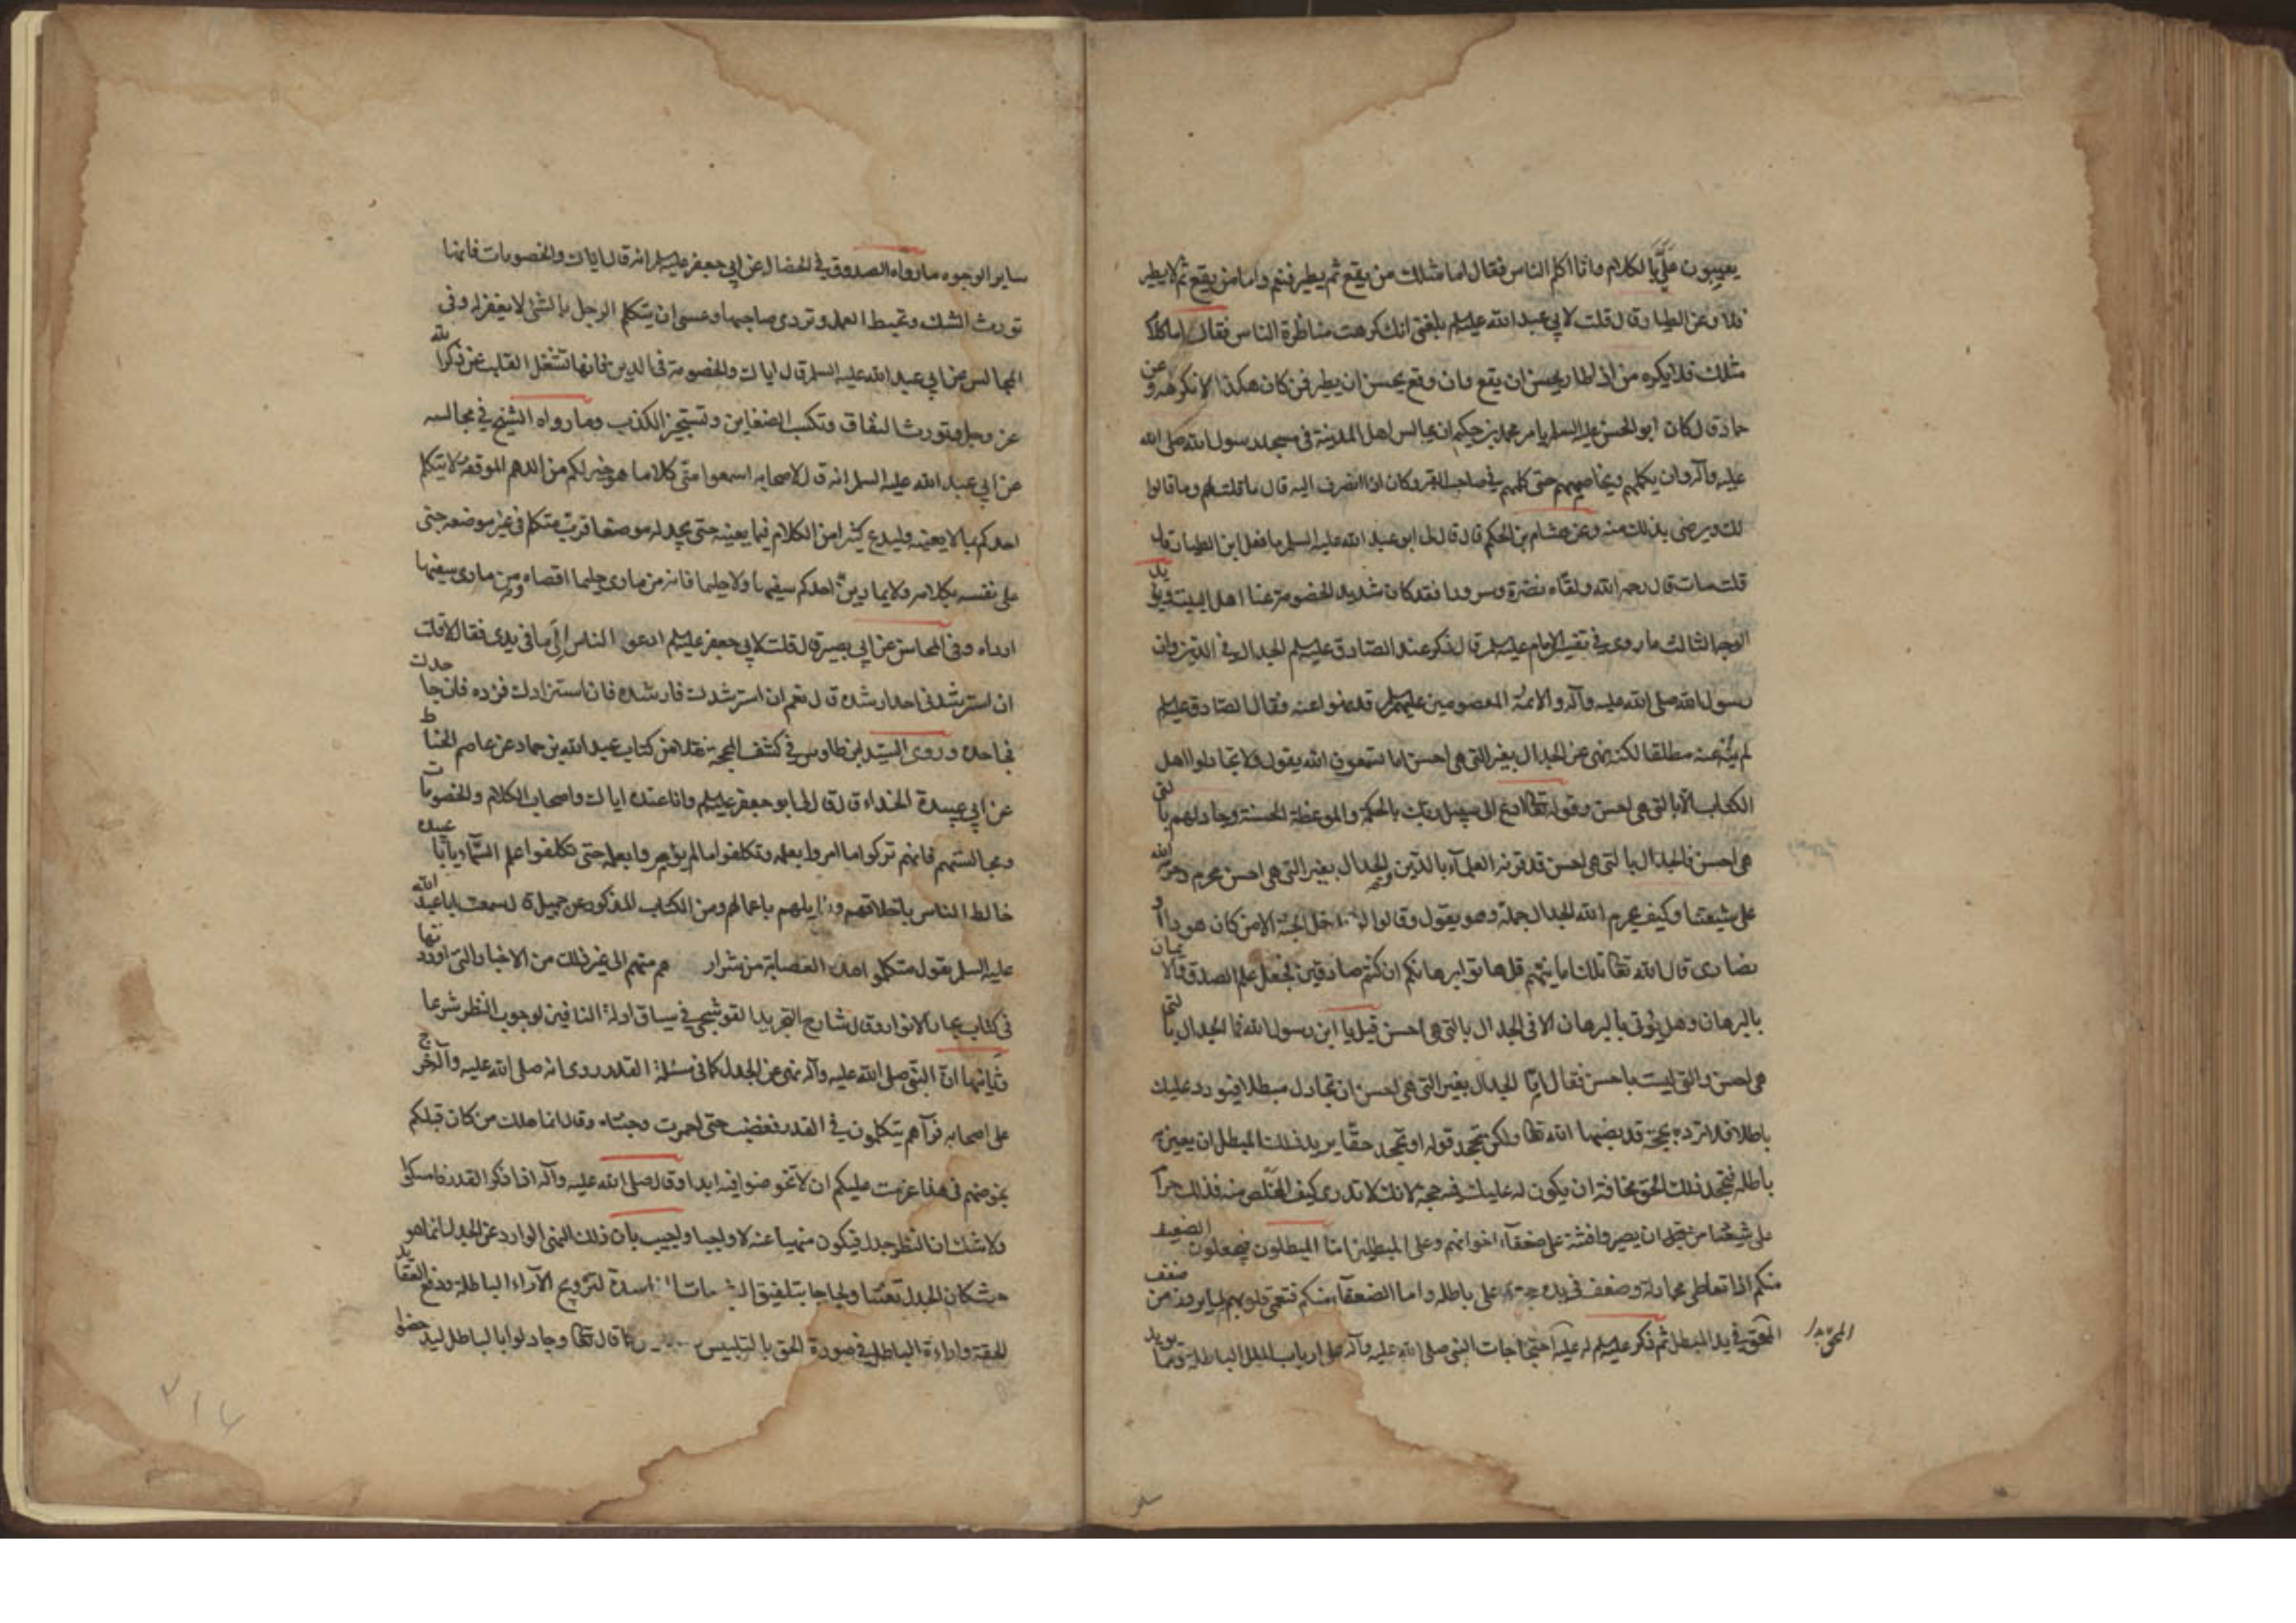 يعيبون عَلَيَّ بالكلام وانا اكلم الناس فقال اما مثلك من يقع ثم يطير فنعم واما من يقع ثم لا يطير
فلا وعن الطيار قال قلت لابي عبد الله عليه السلم بلغني انك كرهت مناظرة الناس فقال اما كلام
مثلك فلا يكره من اذا طار يحسن ان يقع وان وقع يحسن ان يطير فمن كان هكذا لا نكرهه وعن
حماد قال كان ابو الحسن عليه السلم يامر محمد بن حكيم ان يجالس اهل المدينة في مسجد رسول الله صلى الله
عليه وآله وان يكلمهم ويخاصمهم حتى كلمهم في صاحب القبر وكان اذا انصرف اليه قال ما قلت لهم وما قالوا
لك ويرضى بذلك منه وعن هشام بن الحكم قال قال لي ابو عبد الله عليه السلم ما فعل ابن الطيار قال
قلت مات قال رحمه الله ولقّاه نضرة وسرورا فقد كان شديد الخصومة عنا اهل البيت ويؤيد
الوجه الثالث ما روي في تفسير الامام عليه السلم قال ذكر عند الصادق عليه السلم الجدال في الدين وان
رسول الله صلى الله عليه وآله والائمة المعصومين عليهم السلم قد نهوا عنه فقال الصادق عليه السلم
لم ينه عنه مطلقا لكنه نهى عن الجدال بغير التي هي احسن اما تسمعون الله يقول ولا تجادلوا اهل
الكتاب الا بالتي هي احسن وقوله تعالى ادع الى سبيل ربك بالحكمة والموعظة الحسنة وجادلهم بالتي
هي احسن فالجدال بالتي هي احسن قد قرنه العلمآء بالدين والجدال بغير التي هي احسن محرم وحرمه الله
على شيعتنا وكيف يحرم الله الجدال جملة وهو يقول وقالوا لن يدخل الجنة الا من كان هودا او
نصارى قال الله تعالى تلك امانيهم قل هاتوا برهانكم ان كنتم صادقين فجعل علم الصدق والايمان
بالبرهان وهل يؤتى بالبرهان الا في الجدال بالتي هي احسن قيل يا ابن رسول الله فما الجدال بالتي
هي احسن والتي ليست باحسن فقال امّا الجدال بغير التي هي احسن ان تجادل مبطلا فيورد عليك
باطلا فلا ترده بحجة قد نصبها الله تعالى ولكن تجحد قوله او تجحد حقّا يريد ذلك المبطل ان يعين به
باطله فتجحد ذلك الحق مخافة ان يكون له عليك فيه حجة لانك لا تدري كيف المخلص منه فذلك حرام
على شيعتنا من قبل ان يصيروا فتنة على ضعفآء اخوانهم وعلى المبطلين امّا المبطلون فيجعلون الضعيف
منكم اذا تعاطى مجادلة وضعف في يده حجة على باطله واما الضعفآء منكم فتعمى قلوبهم لما يرون من ضعف
المحق في يد المبطل ثم ذكر عليه السلم احتجاجات النبي صلى الله عليه وآله على ارباب الملل الباطلة ومما يويد
ساير الوجوه ما رواه الصدوق في الخصال عن ابي جعفر عليه السلم انه قال اياك والخصومات فانها
تورث الشك وتحبط العمل وتردي صاحبها وعسى ان يتكلم الرجل بالشئ لا يغفر له وفي
المجالس عن ابي عبد الله عليه السلم قال اياك والخصومة في الدين فانها تشغل القلب عن ذكر الله
عز وجل وتورث النفاق وتكسب الضغاين وتستجيز الكذب وما رواه الشيخ في مجالسه
عن ابي عبد الله عليه السلم انه قال لاصحابه اسمعوا منّي كلاما هو خير لكم من الدهم الموقفة لا يتكلم
احدكم بما لا يعنيه وليدع كثيرا من الكلام فيما يعنيه حتى يجد له موضعا فرب متكلم في غير موضعه جنى
على نفسه بكلامه ولا يمارين احدكم سفيها ولا حليما فانه من مارى حليما اقصاه ومن مارى سفيها
ارداه وفي المحاسن عن ابي بصير قال قلت لابي جعفر عليه السلم ادعو الناس الى ما في يدي فقال لا قلت
ان استرشدني احد ارشده قال نعم ان استرشدك فارشده فان استزادك فزده فان جاحدك
فجاحده وروى السيّد ابن طاوس في كشف المحجة نقلا من كتاب عبد الله بن حماد عن عاصم الحناط
عن ابي عبيدة الحذاء قال قال لي ابو جعفر عليه السلم وانا عنده اياك واصحاب الكلام والخصومات
ومجالستهم فانهم تركوا ما امروا بعلمه وتكلفوا ما لم يؤمروا بعلمه حتى تكلفوا علم السّمآء يا ابا عبيده
خالط الناس باخلاقهم وزايلهم باعمالهم ومن الكتاب المذكور عن جميل قال سمعت ابا عبد الله
عليه السلم يقول متكلموا هذه العصابة من شرار من هم منهم الى غير ذلك من الاخبار التي اوردتها
في كتاب بحار الانوار وقال شارح التجريد القوشجي في سياق ادلة النافين لوجوب النظر شرعا
وثانيها انّ النبي صلى الله عليه وآله نهى عن الجدل كما في مسئلة القدر روى انه صلى الله عليه وآله خرج
على اصحابه فرآهم يتكلمون في القدر فغضب حتى احمرت وجنتاه وقال انما هلك من كان قبلكم
بخوضهم في هذا عزمت عليكم ان لا تخوضوا فيه ابدا وقال صلى الله عليه وآله اذا ذكر القدر فامسكوا
ولا شك ان النظر جدل فيكون منهيا عنه لا واجبا واجيب بان ذلك النهي الوارد عن الجدل انما هو
حيث كان الجدل تعنتا ولجاجا بتلفيق الشبهات الفاسدة لترويج الآراء الباطلة ودفع العقايد
الحقة واراءة الباطل في صورة الحق بالتلبيس كما قال تعالى وجادلوا بالباطل ليدحضوا